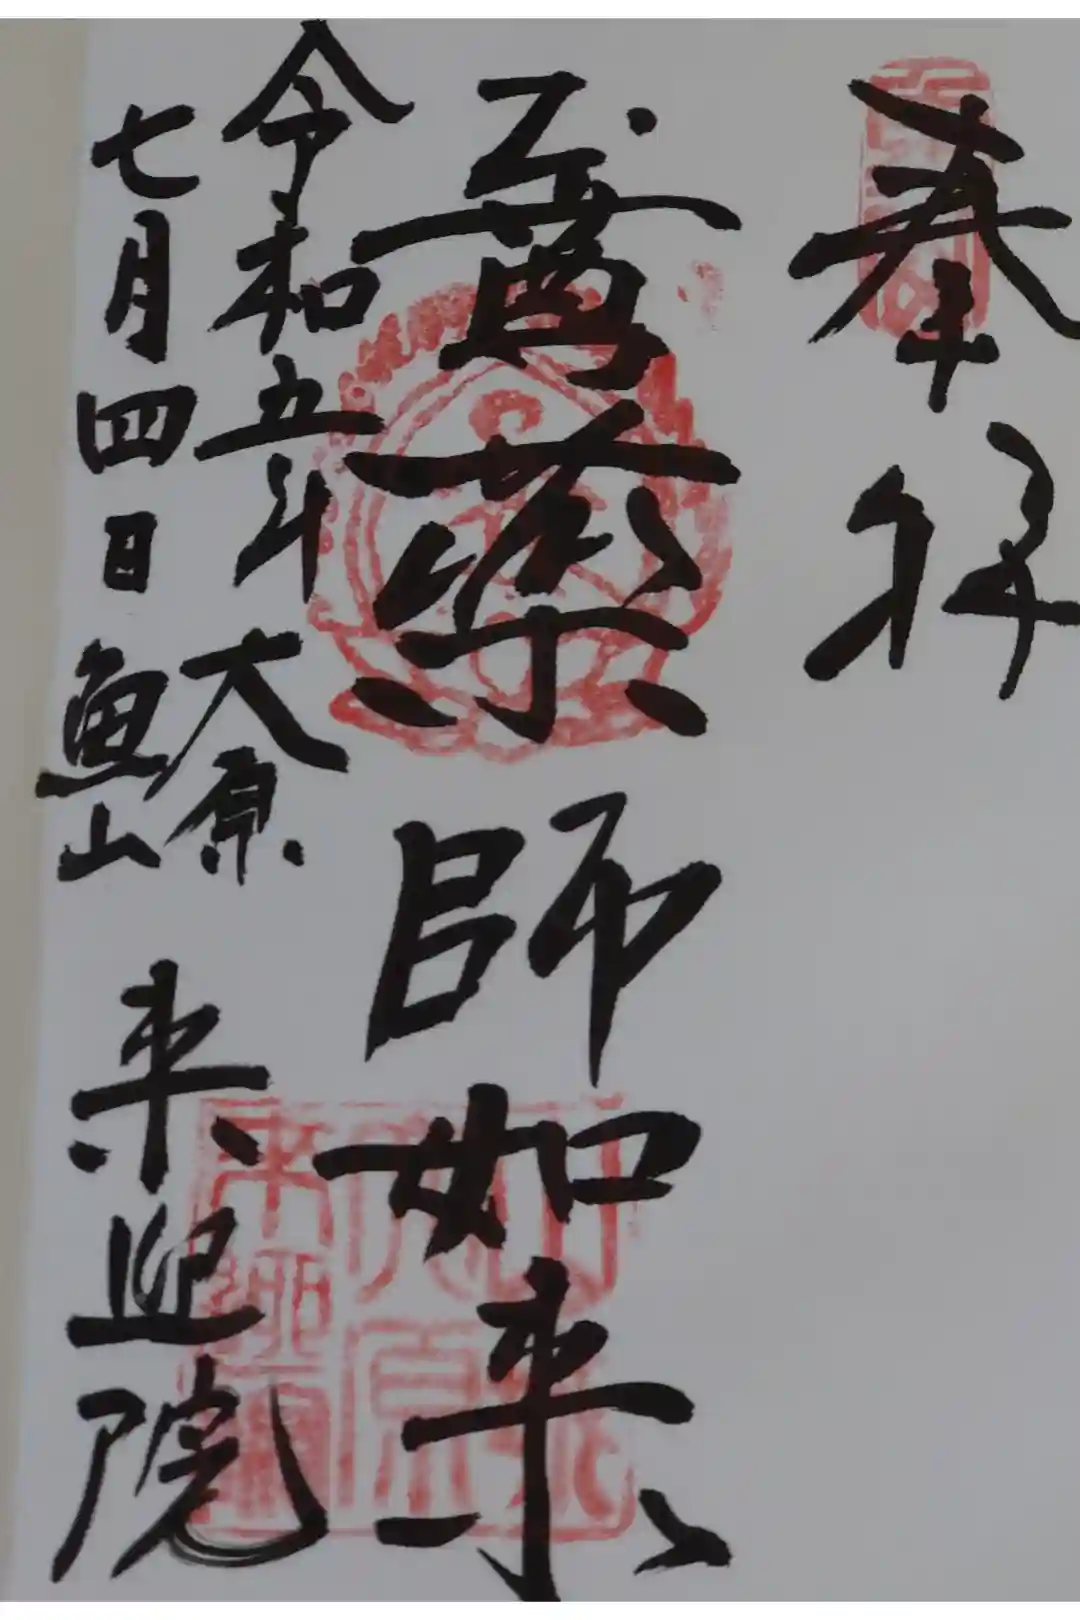 奉拝
薬師如来
令和五年
七月四日
大原
魚山
来迎院